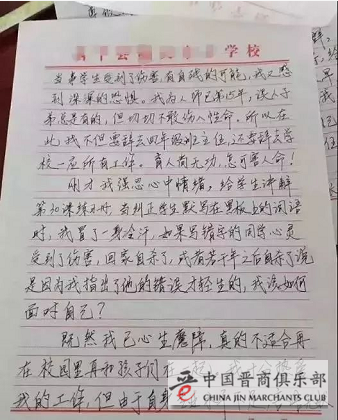 学校
当事学生受到了伤害，有自残的可能，我又感
到深深的恐惧。我为人师已第15年，误人子
弟总是有的，但切切不敢伤人性命，所以在
此我不但要辞去四年级班主任，还要辞去学
校一应所有工作。育人尚无功，怎可害人命！
刚才我强忍心中情绪，给学生讲解
第30课练习册，当纠正学生默写在黑板上的词语
时，我冒了一身冷汗，如果写错字的同学心灵
受到了伤害，回家自杀了，或者若干年之后自杀了说
是因为我指出了他的错误才轻生的，我该如何
面对自己？
既然我已心生魔障，真的不适合再
在校园里再和孩子们在一起
我的工作，但由于自身
中国晋商俱乐部
CHINA JIN MARCHANTS CLUB